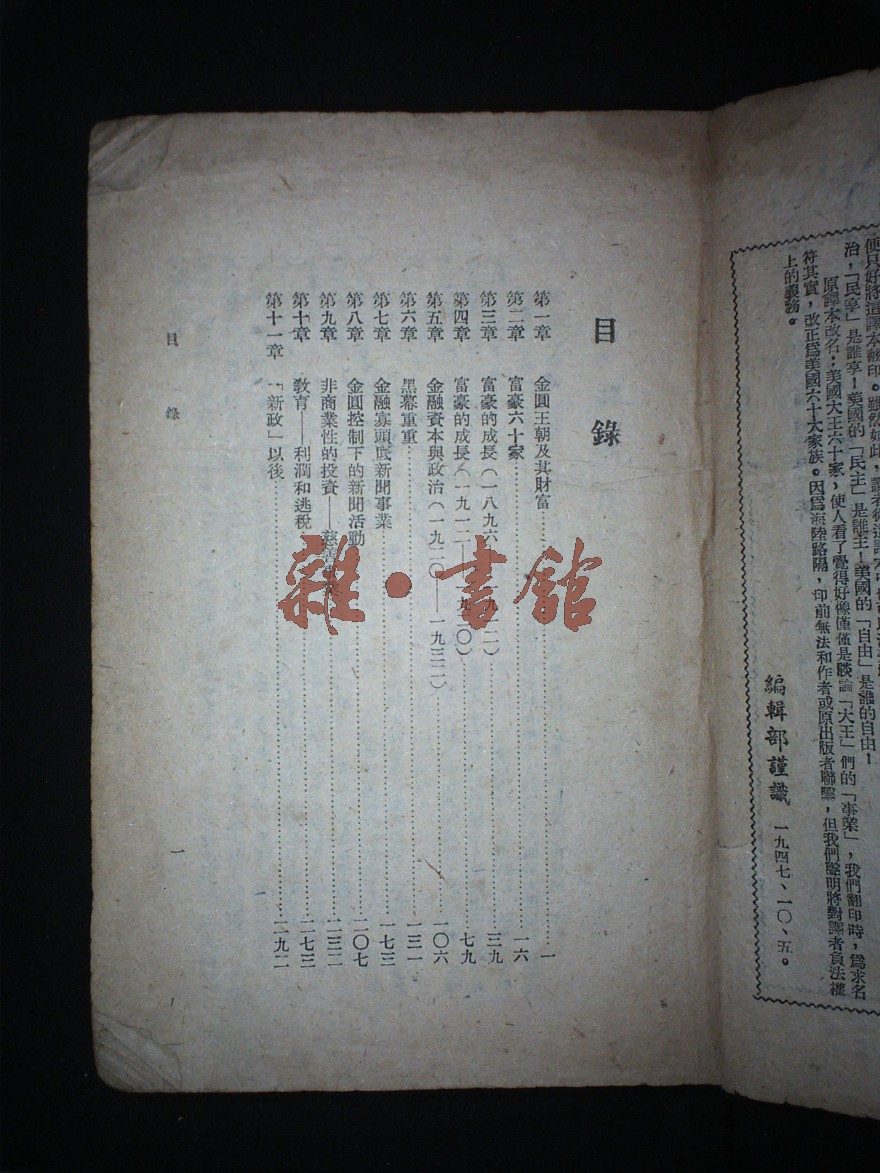 便只好將這譯本翻印。雖然如此，讀者從這譯本中
治，「民享」是誰享！美國的「民主」是誰主！美國的「自由」是誰的自由！
原譯本改名：美國大王六十家，使人看了覺得好像僅僅是談論「大王」們的「事業」，我們翻印時，爲求名
符其實，改正爲美國六十大家族。因爲海陸路隔，印前無法和作者或原出版者聯繫，但我們聲明將對譯者負法權
上的義務。
編輯部謹識 一九四七、一〇、五。
目錄
第一章 金圓王朝及其財富 一
第二章 富豪六十家 一六
第三章 富豪的成長（一八九六——一九一二） 三九
第四章 富豪的成長（一九一二——一九二〇） 七九
第五章 金融資本與政治（一九二〇——一九三二） 一〇六
第六章 黑幕重重 一三一
第七章 金融寡頭底新聞事業 一七三
第八章 金圓控制下的新聞活動 二〇七
第九章 非商業性的投資——慈善 二三二
第十章 敎育——利潤和逃稅 二七三
第十一章 「新政」以後 二九二
目錄
一
雜·書館